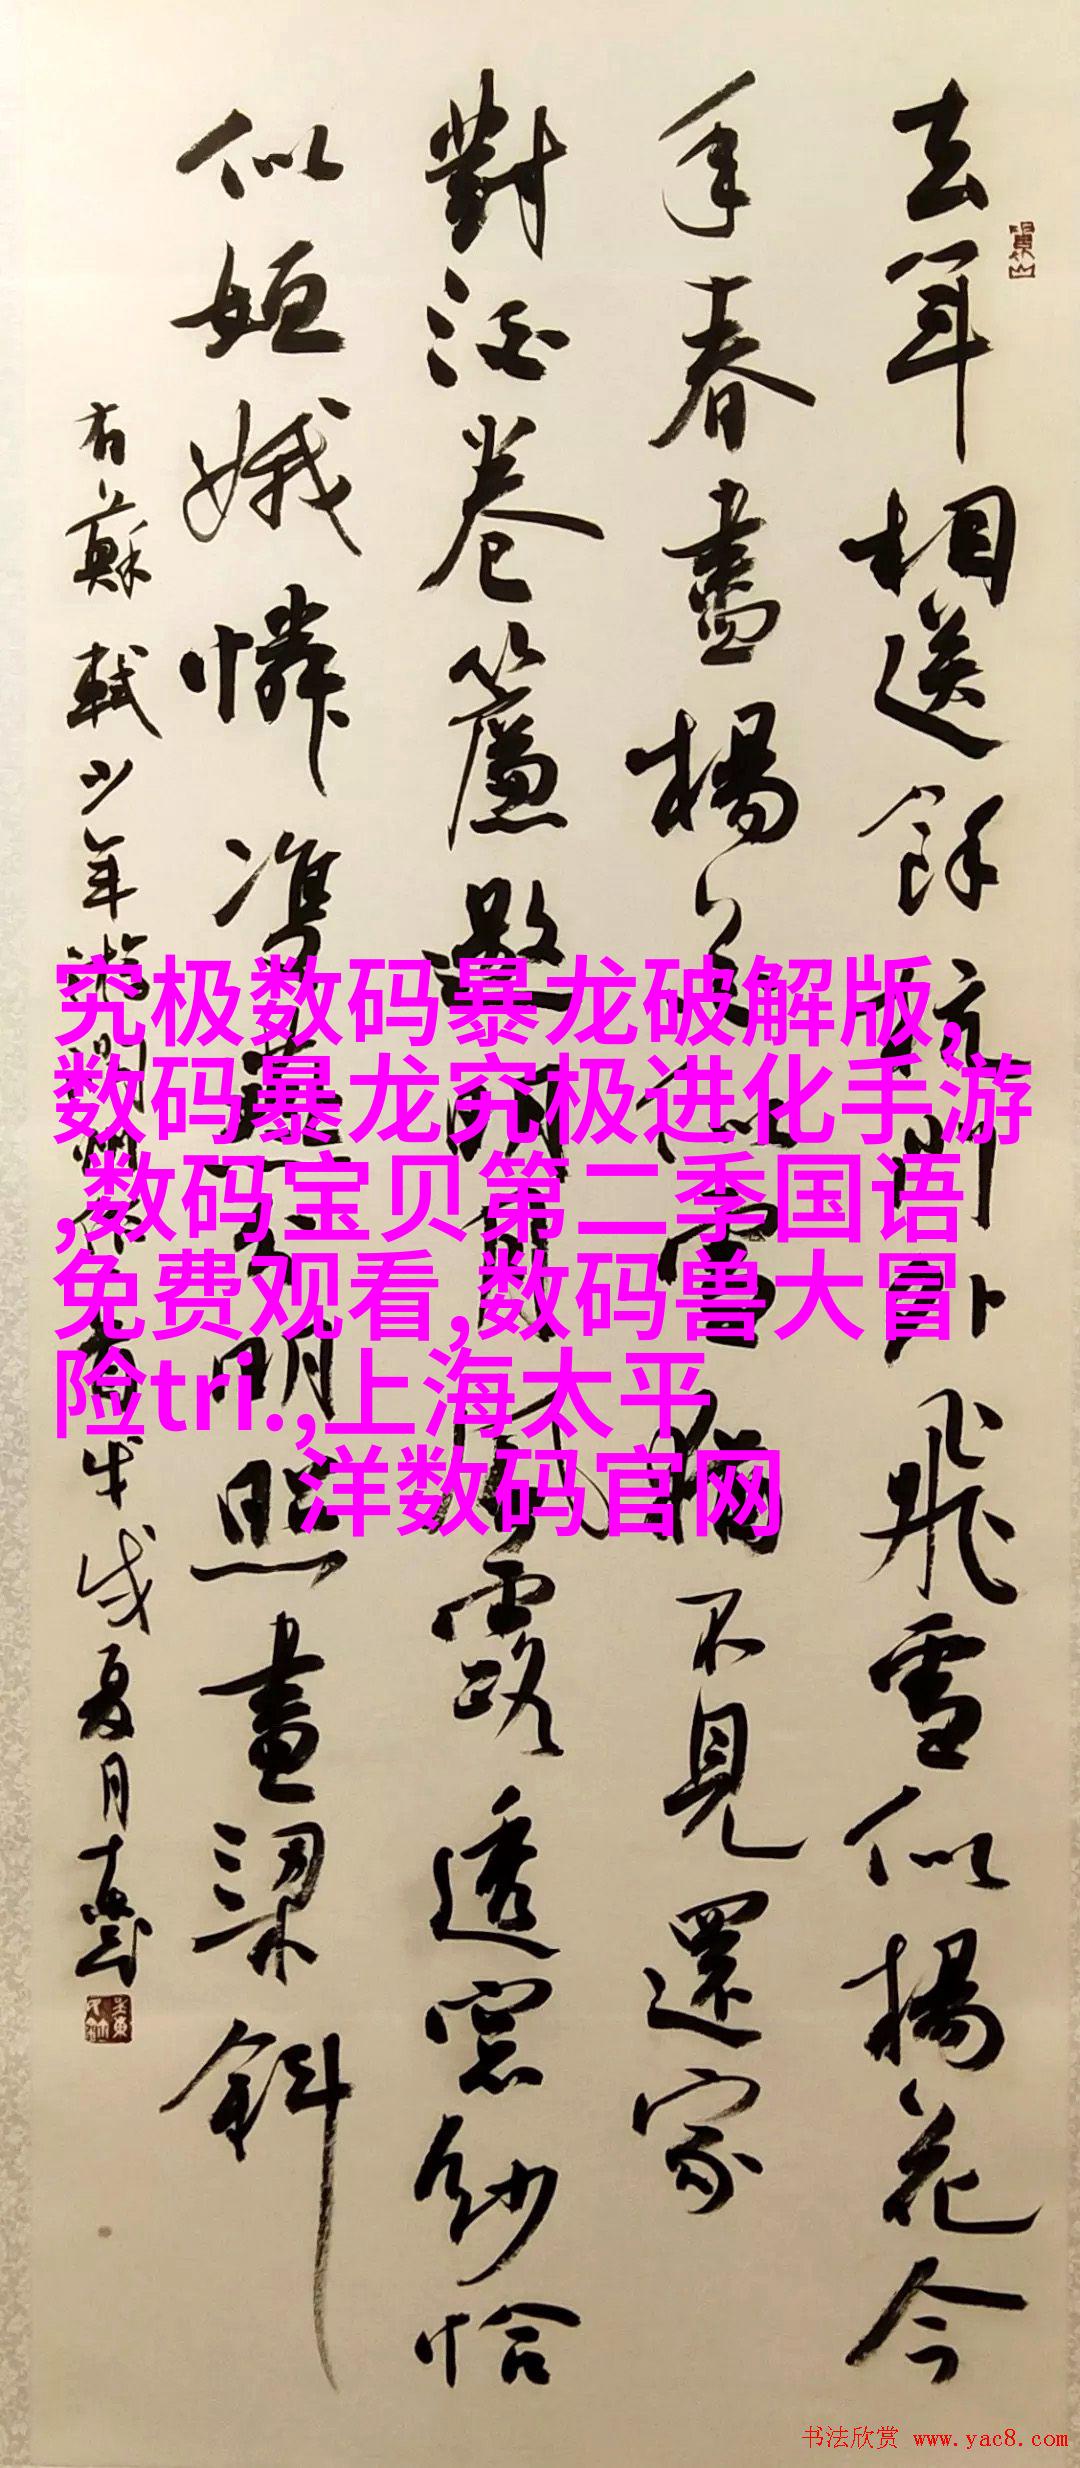 去年相送餘杭門外飛雪似楊花今
年春盡楊花似雪猶不見還家
對酒卷簾邀明月風露透窗紗恰
似姮娥憐雙燕分明照畫梁斜
右蘇軾少年游潤州作戊戌夏月
究极数码暴龙破解版,
数码暴龙究极进化手游
,数码宝贝第二季国语
免费观看,数码兽大冒
险tri.,上海太平
洋数码官网
书法欣赏 www.yac8.com